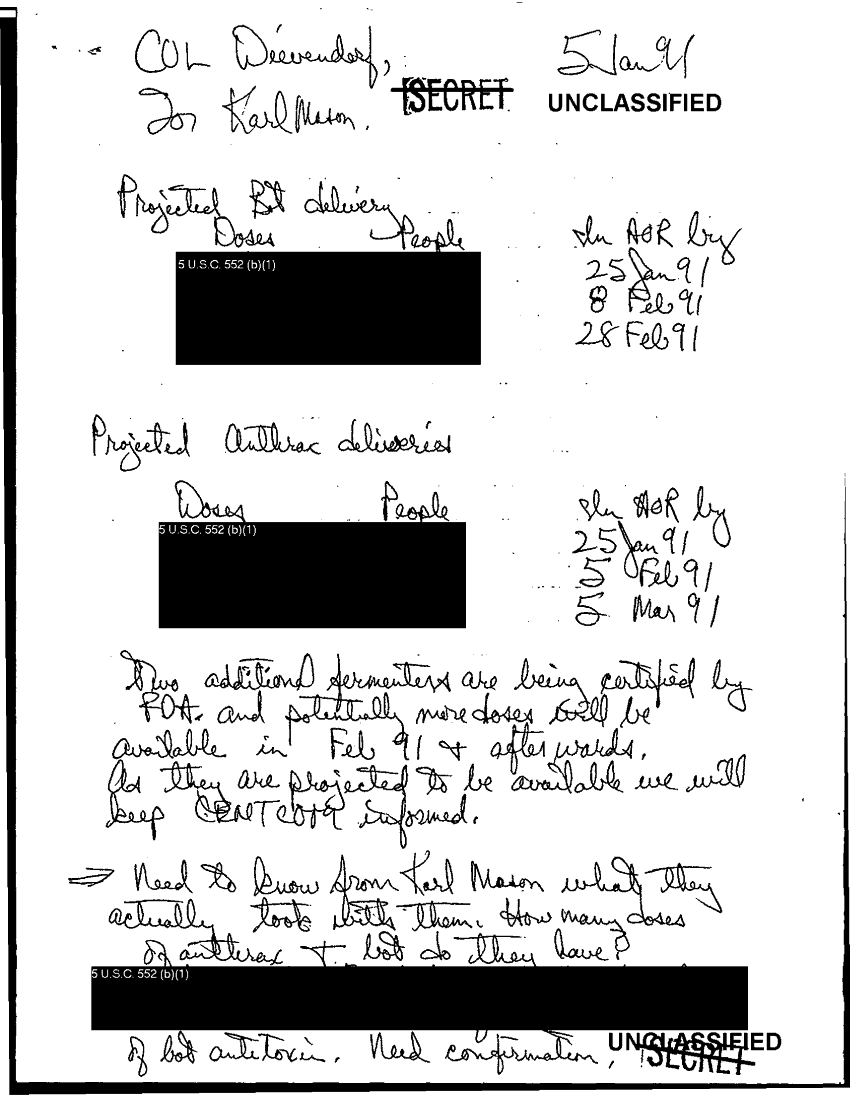 COL Dievendorf, 5 Jan 91
SECRET UNCLASSIFIED
For Karl Mason.
Projected Bot delivery
Doses People In AOR by
5 U.S.C. 552 (b)(1)
25 Jan 91
8 Feb 91
28 Feb 91
Projected Anthrax deliveries
Doses People In AOR by
5 U.S.C. 552 (b)(1)
25 Jan 91
5 Feb 91
5 Mar 91
Two additional fermenters are being certified by
FDA. and potentially more doses will be
available in Feb 91 + afterwards.
As they are projected to be available we will
keep CENTCOM informed.
⇒ Need to know from Karl Mason what they
actually took with them. How many doses
of anthrax + bot do they have?
5 U.S.C. 552 (b)(1)
of bot antitoxin. Need confirmation.
UNCLASSIFIED
SECRET